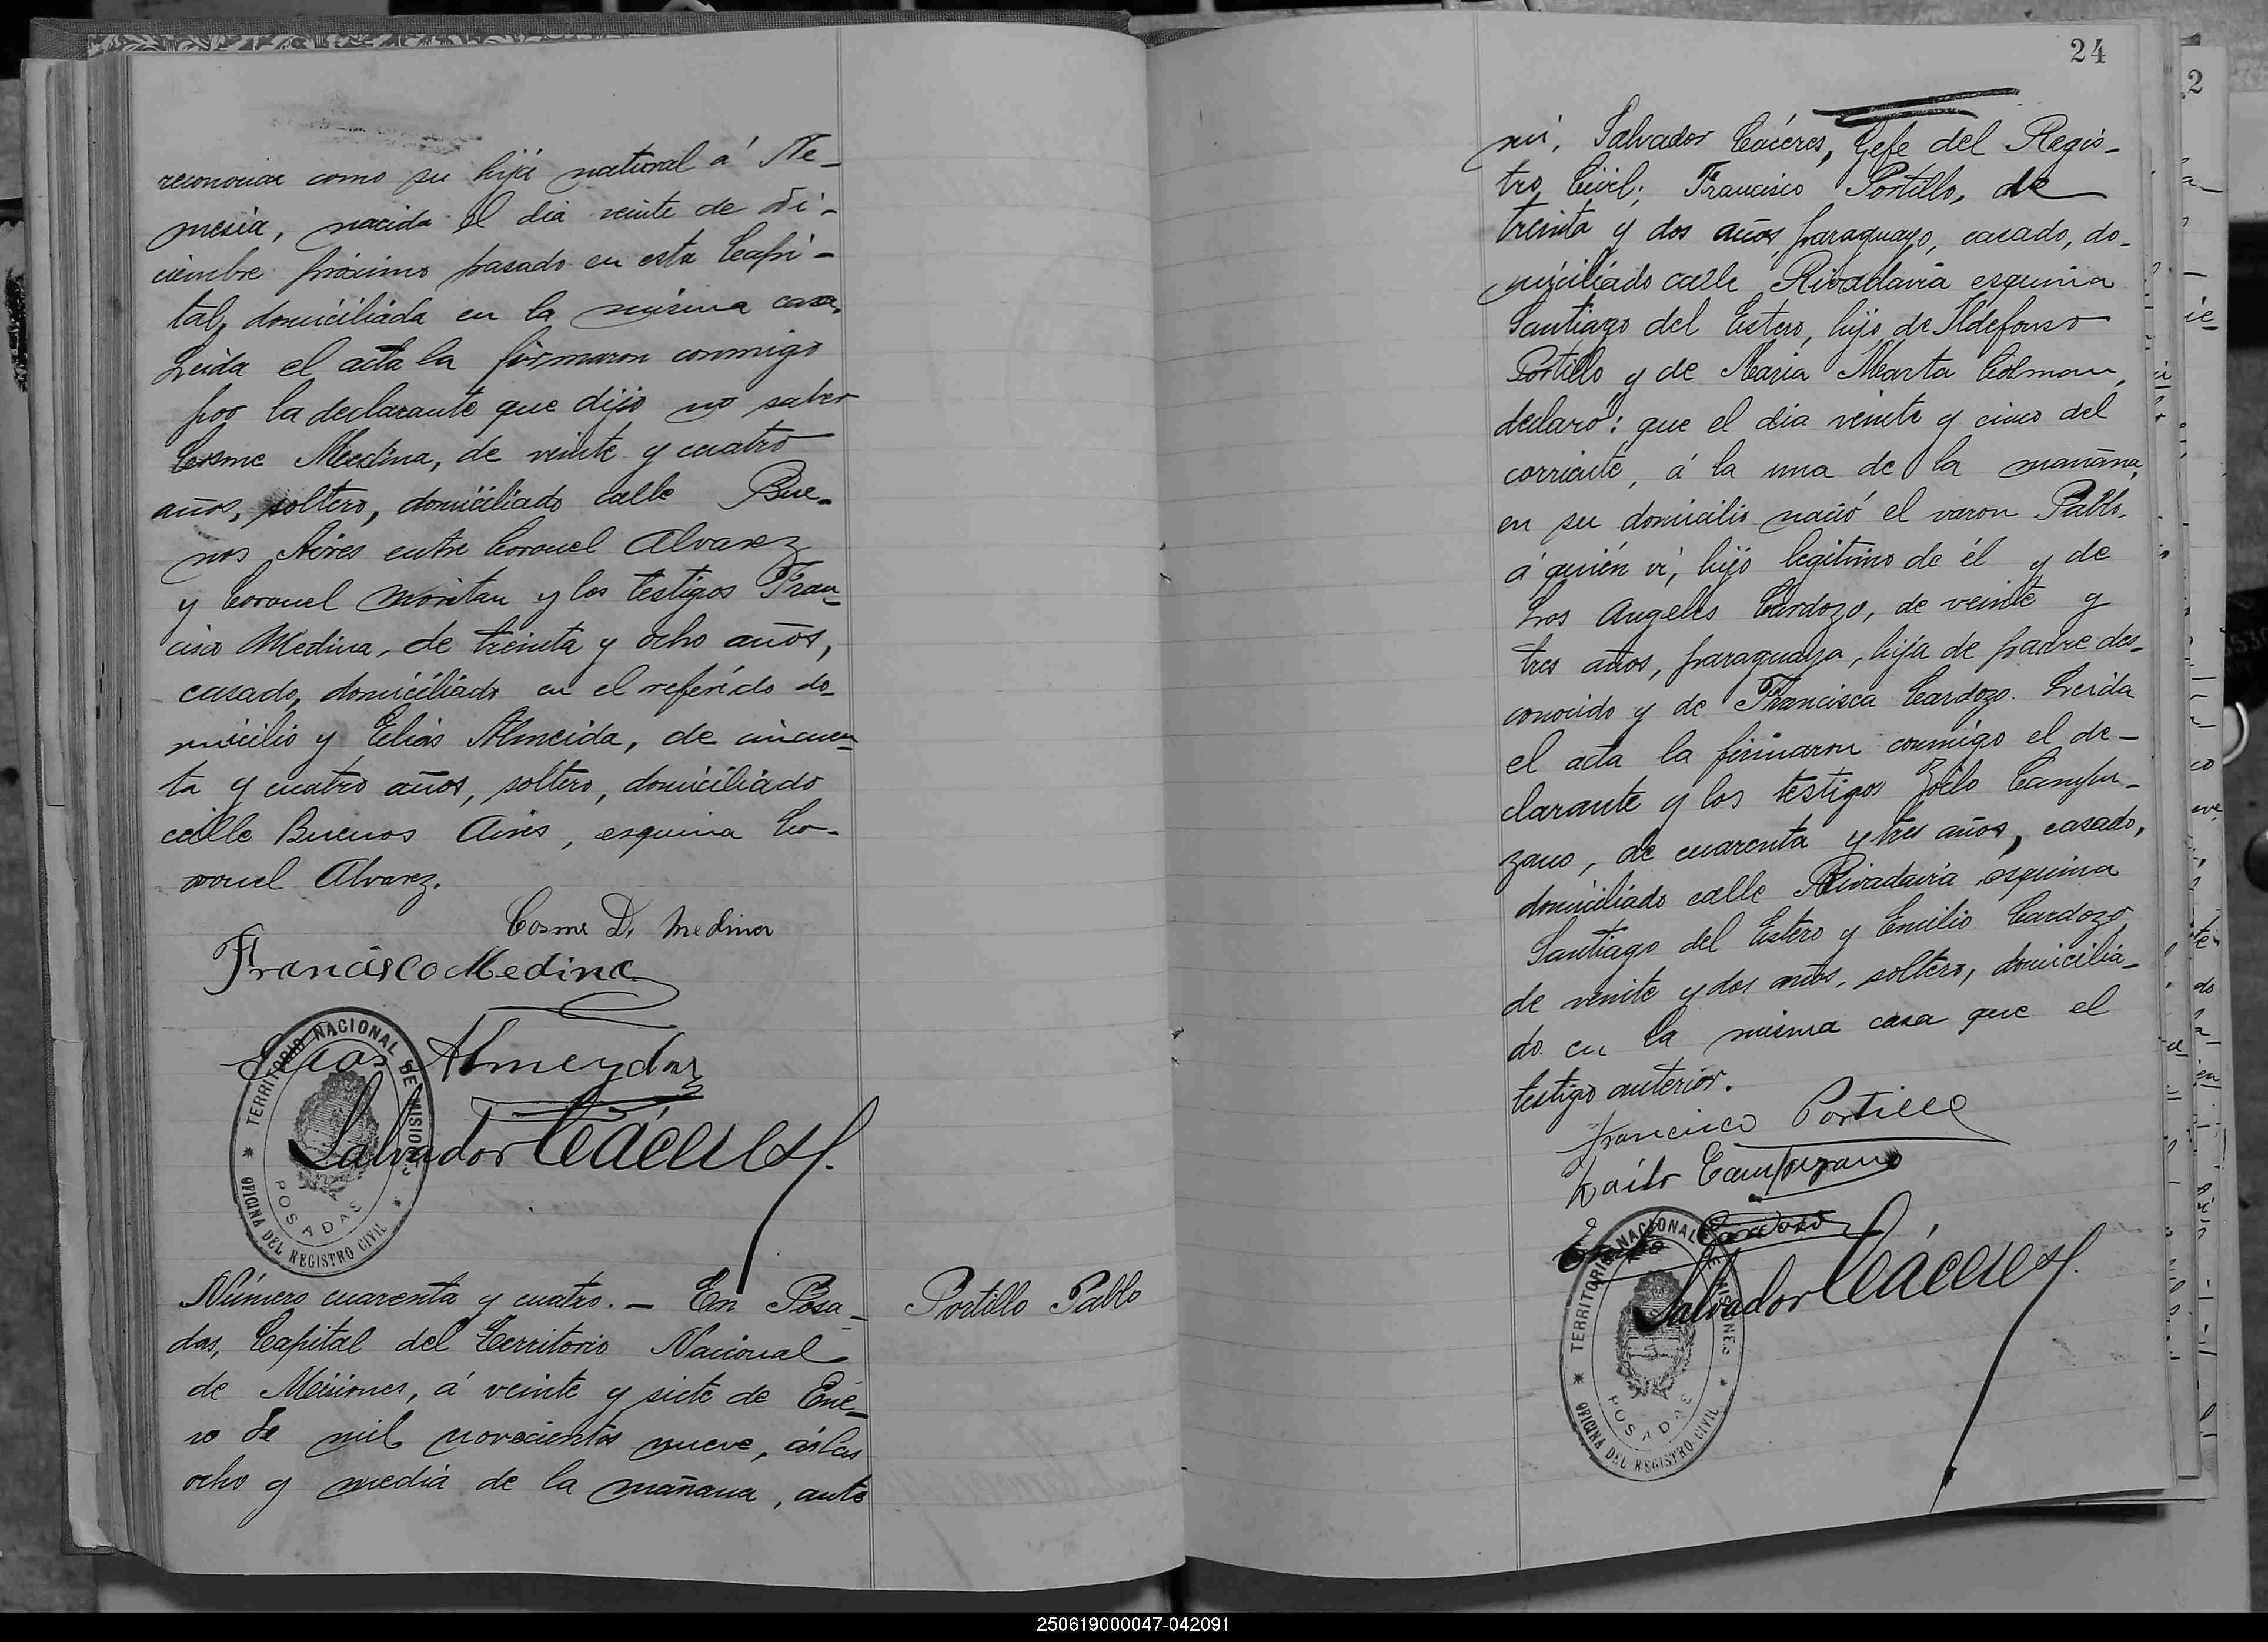 reconocer como su hija natural á Ne-
mesia, nacida el dia veinte de Di-
ciembre próximo pasado en esta Capi-
tal, domiciliada en la misma casa.
Leida el acta la firmaron conmigo
por la declarante que dijo no saber
Cosme Medina, de veinte y cuatro
años, soltero, domiciliado calle Bue-
nos Aires entre Coronel Alvarez
y Coronel y los testigos Fran-
cisco Medina, de treinta y ocho años,
casado, domiciliado en el referido do-
micilio y Elias Almeida, de cincuen-
ta y cuatro años, soltero, domiciliado
calle Buenos Aires, esquina Co-
ronel Alvarez.
Cosme D. Medina
Francisco Medina
Elias Almeyda
Salvador Cáceres
TERRITORIO NACIONAL DE MISIONES
POSADAS
OFICINA DEL REGISTRO CIVIL
Número cuarenta y cuatro. - En Posa-
das, Capital del Territorio Nacional
de Misiones, á veinte y siete de Ene-
ro de mil novecientos nueve, á las
ocho y media de la mañana, ante
Portillo Pablo
24
mi, Salvador Cáceres, Gefe del Regis-
tro Civil; Francisco Portillo, de
treinta y dos años, paraguayo, casado, do-
miciliado calle Rivadavia esquina
Santiago del Estero, hijo de Ildefonso
Portillo y de Maria Marta Colman,
declaró: que el dia veinte y cinco del
corriente, á la una de la mañana,
en su domicilio nació el varon Pablo,
á quién vi, hijo legitimo de él y de
Los Angeles Cardozo, de veinte y
tres años, paraguaya, hija de padre des-
conocido y de Francisca Cardozo. Leida
el acta la firmaron conmigo el de-
clarante y los testigos Zoilo Campu-
zano, de cuarenta y tres años, casado,
domiciliado calle Rivadavia esquina
Santiago del Estero y Emilio Cardozo,
de veinte y dos años, soltero, domicilia-
do en la misma casa que el
testigo anterior.
Francisco Portillo
Zoilo Campuzano
Emilio Cardozo
Salvador Cáceres
TERRITORIO NACIONAL DE MISIONES
POSADAS
OFICINA DEL REGISTRO CIVIL
2
250619000047-042091